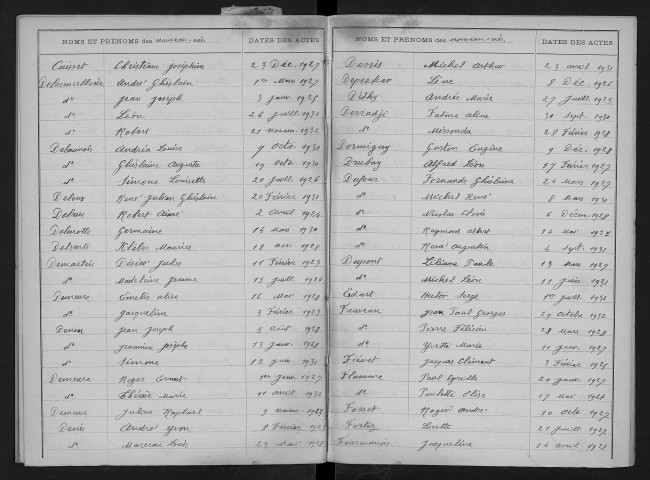 NOMS ET PRÉNOMS des nouveau-nés. DATES DES ACTES
Cuisset Christiane Joséphine 23 Déc. 1927
André Ghislain 1er Mars 1927
do Jean Joseph 3 janv. 1925
do Léon 26 juill. 1931
do Robert 21 novem. 1932
Delaunois Andréa Louise 9 octo. 1930
do Ghislaine Augusta 19 octo. 1930
do Simone Louisette 20 juill. 1926
Deloux René Julien Ghislain 20 Février 1931
Robert Aimé 2 avril 1924
Germaine 14 mars 1930
Kléber Maurice 18 nov. 1928
Désiré Jules 11 Février 1923
do Madeleine Jeanne 15 juill. 1924
Demeure Emelie alice 16 Mai 1928
do Jacqueline 3 Février 1923
Denon Jean Joseph 5 août 1928
do Jeannine Josèphe 13 janv. 1928
do Simone 12 juin 1931
Demeure Roger Ernest 1er janv. 1927
do Thérèse Marie 11 avril 1932
Demeure Julien Raphael 9 novem.
Denis André Yvon 8 Février
do Marceau Louis 23 Mai 1925
NOMS ET PRÉNOMS des nouveau-nés. DATES DES ACTES
Denis Michel Arthur 23 avril 1931
Léne 8 Déc. 1926
Andrée Marie 27 juill. 1925
Derradji Fatma aline 30 sept. 1930
do Messaouda 28 Février 1928
Dormigny Gaston Eugène 9 Déc. 1928
Drubay Alfred Léon 17 Févr. 1927
Dufour Fernande Ghislaine 24 Mars 1927
do Michel René 8 Mars 1930
do Nicolas Clovis 6 Décem. 1928
do Raymond albert 14 Mai 1925
do René Augustin 4 Sept. 1931
Dupont Liliane Paule 13 Mars 1927
do Michel Léon 11 juin 1931
Edart Hector Serge 1er juill. 1931
Fauveau Jean Paul Georges 29 octobre 1932
do Pierre Félicien 28 Mars 1928
do Yvette Marie 11 janv. 1927
Fiévet Jacques Clément 3 Février 1925
Flamme Paul Cyrille 20 janv. 1927
do Paulette Elise 17 Mai 1928
Fosset Roger André 10 octo. 1927
Fortiz Lucette 21 juill. 1927
Fourmanois Jacqueline 14 avril 1928